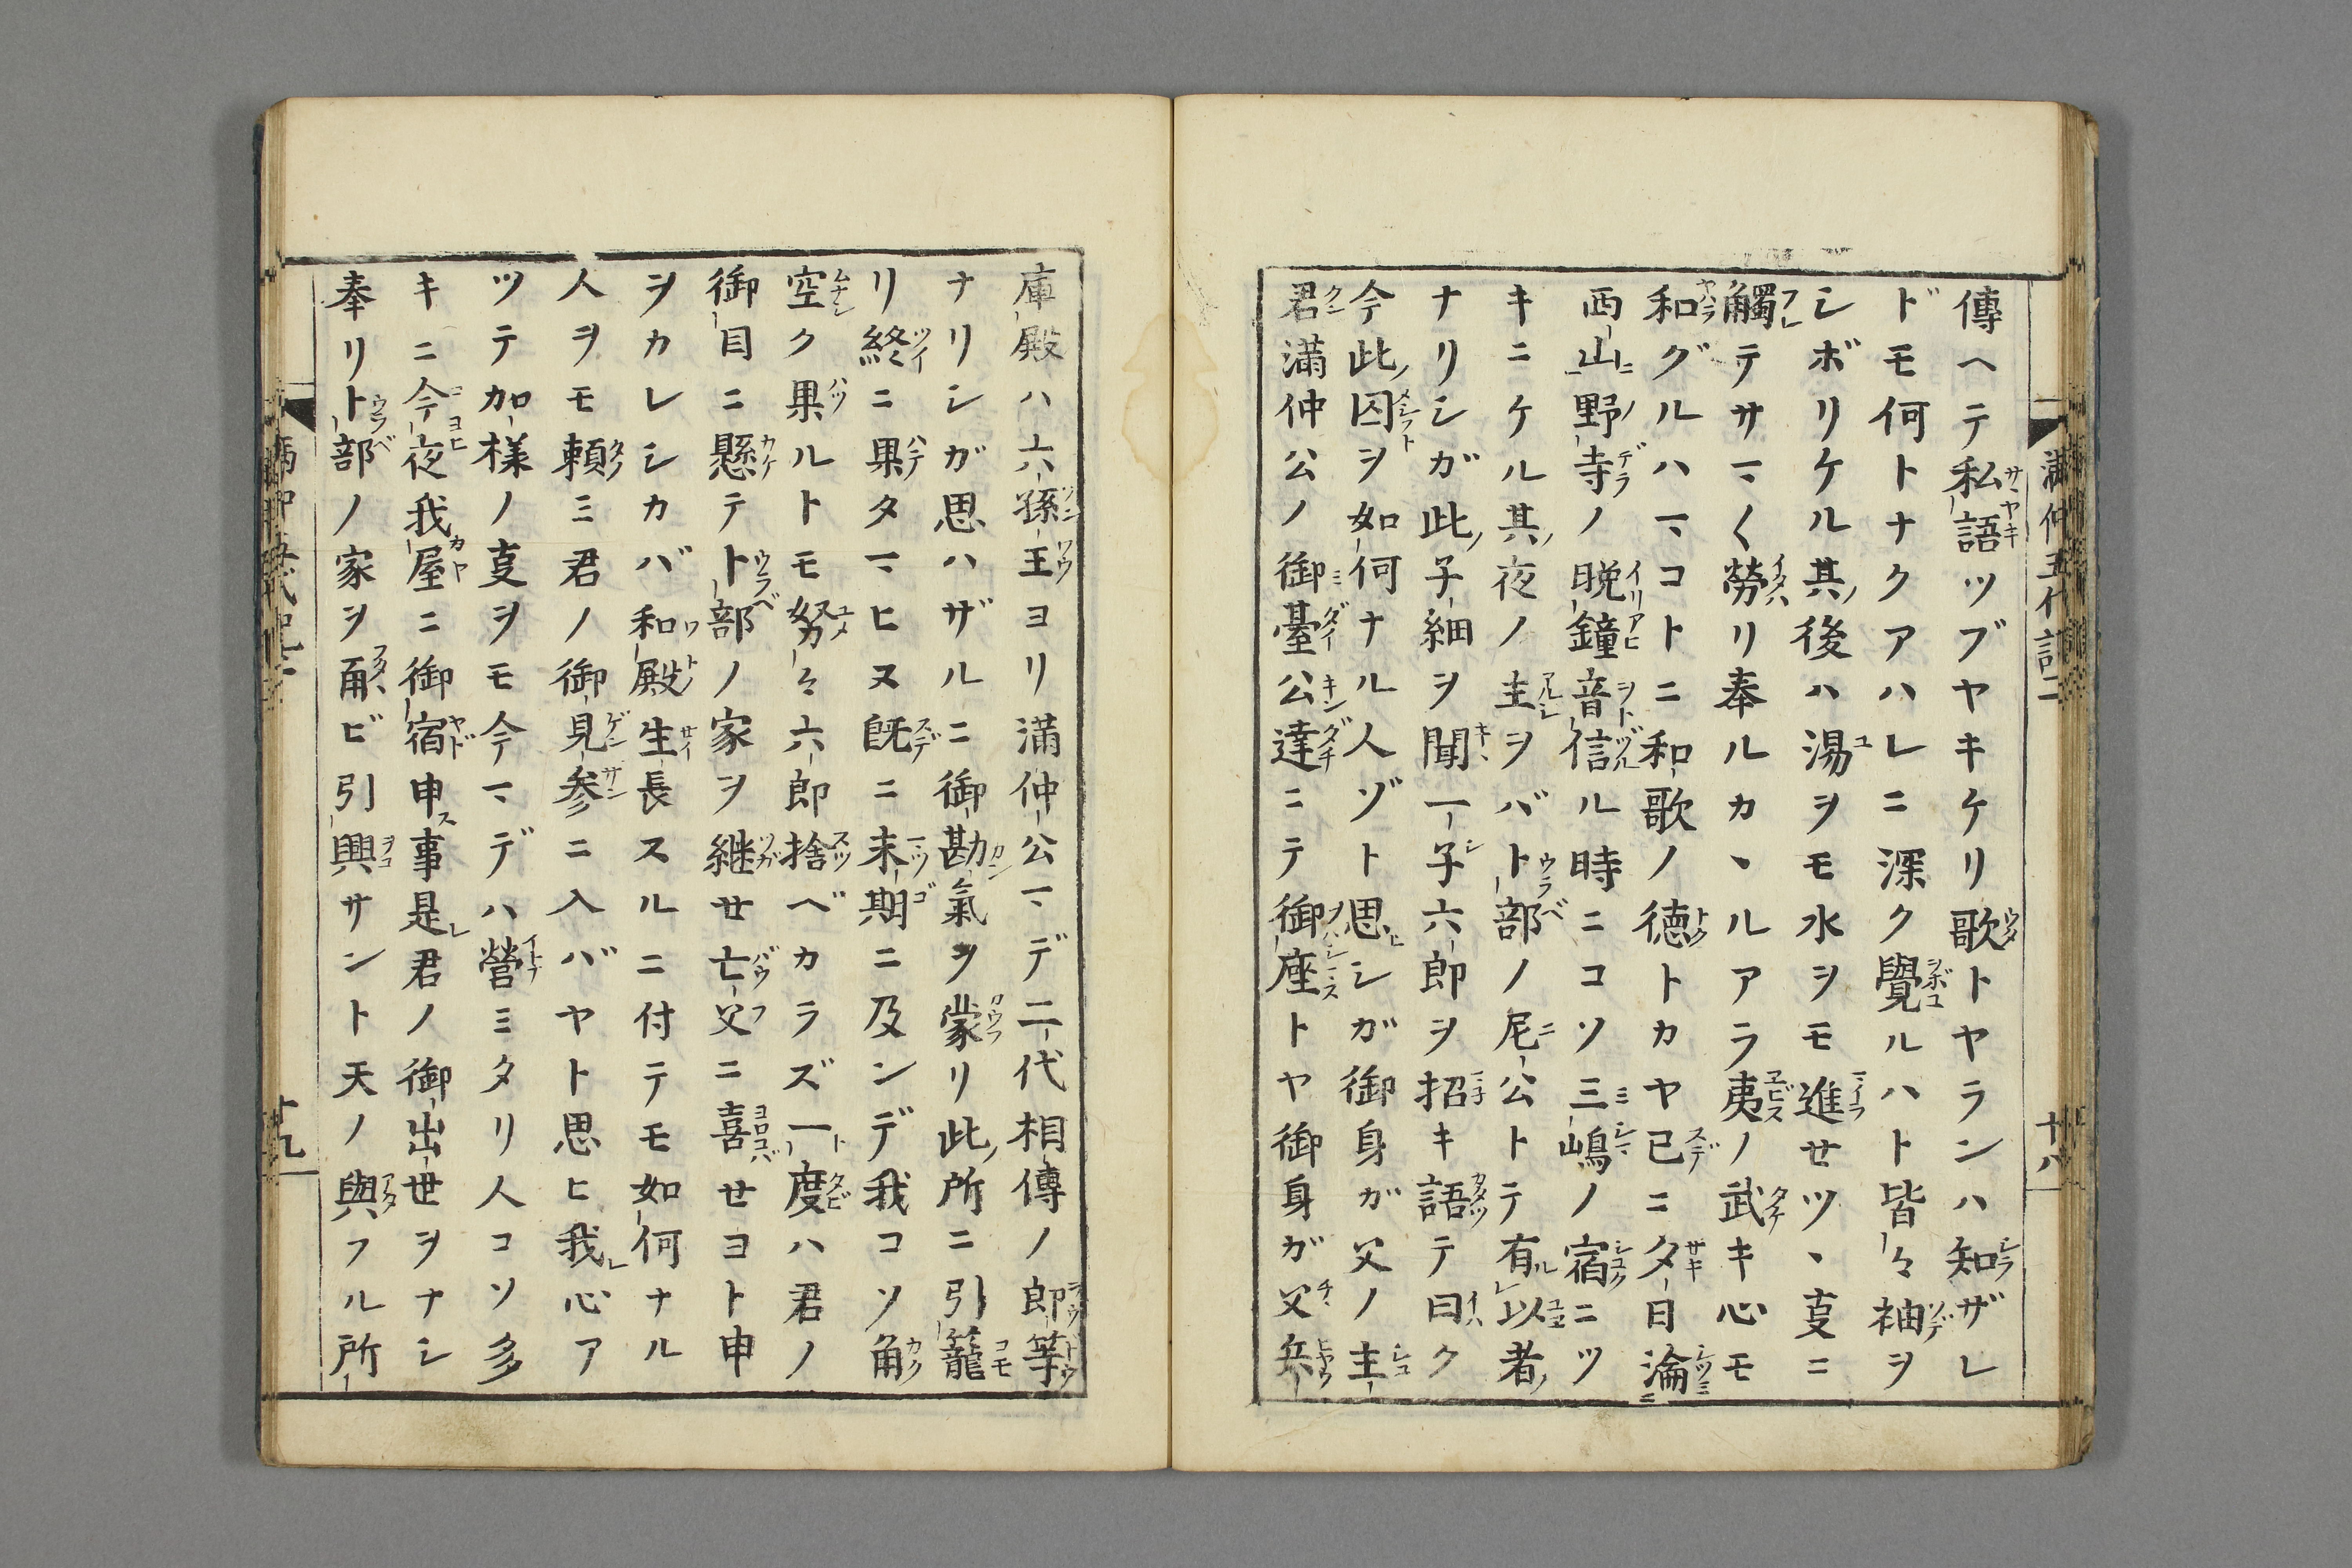 傳ヘテ私語ツブヤキケリ歌トヤランハ知ザレ
ドモ何トナクアハレニ深ク覺ルハト皆々袖ヲ
シボリケル其後ハ湯ヲモ水ヲモ進セツヽ叓ニ
觸テサマ〱勞リ奉ルカヽルアラ夷ノ武キ心モ
和グルハマコトニ和歌ノ德トカヤ已ニ夕日淪
西山野寺ノ晩鐘音信ル時ニコソ三嶋ノ宿ニツ
キニケル其夜ノ主ヲバ卜部ノ尼公トテ有以者
ナリシガ此子細ヲ聞一子六郎ヲ招キ語テ曰ク
今此囚ヲ如何ナル人ゾト思シガ御身ガ父ノ主
君滿仲公ノ御臺公達ニテ御座トヤ御身ガ父兵
滿仲五代記二
十八
庫殿ハ六孫王ヨリ滿仲公マデ二代相傳ノ郎等
ナリシガ思ハザルニ御勘氣ヲ蒙リ此所ニ引籠
リ終ニ果タマヒヌ旣ニ末期ニ及ンデ我コソ角
空ク果ルトモ努々六郎捨ベカラズ一度ハ君ノ
御目ニ懸テ卜部ノ家ヲ継セ亡父ニ喜セヨト申
ヲカレシカバ和殿生長スルニ付テモ如何ナル
人ヲモ頼ミ君ノ御見参ニ入バヤト思ヒ我心ア
ツテ加樣ノ叓ヲモ今マデハ營ミタリ人コソ多
キニ今夜我屋ニ御宿申事是君ノ御出世ヲナシ
奉リ卜部ノ家ヲ再ビ引興サント天ノ與フル所
十九